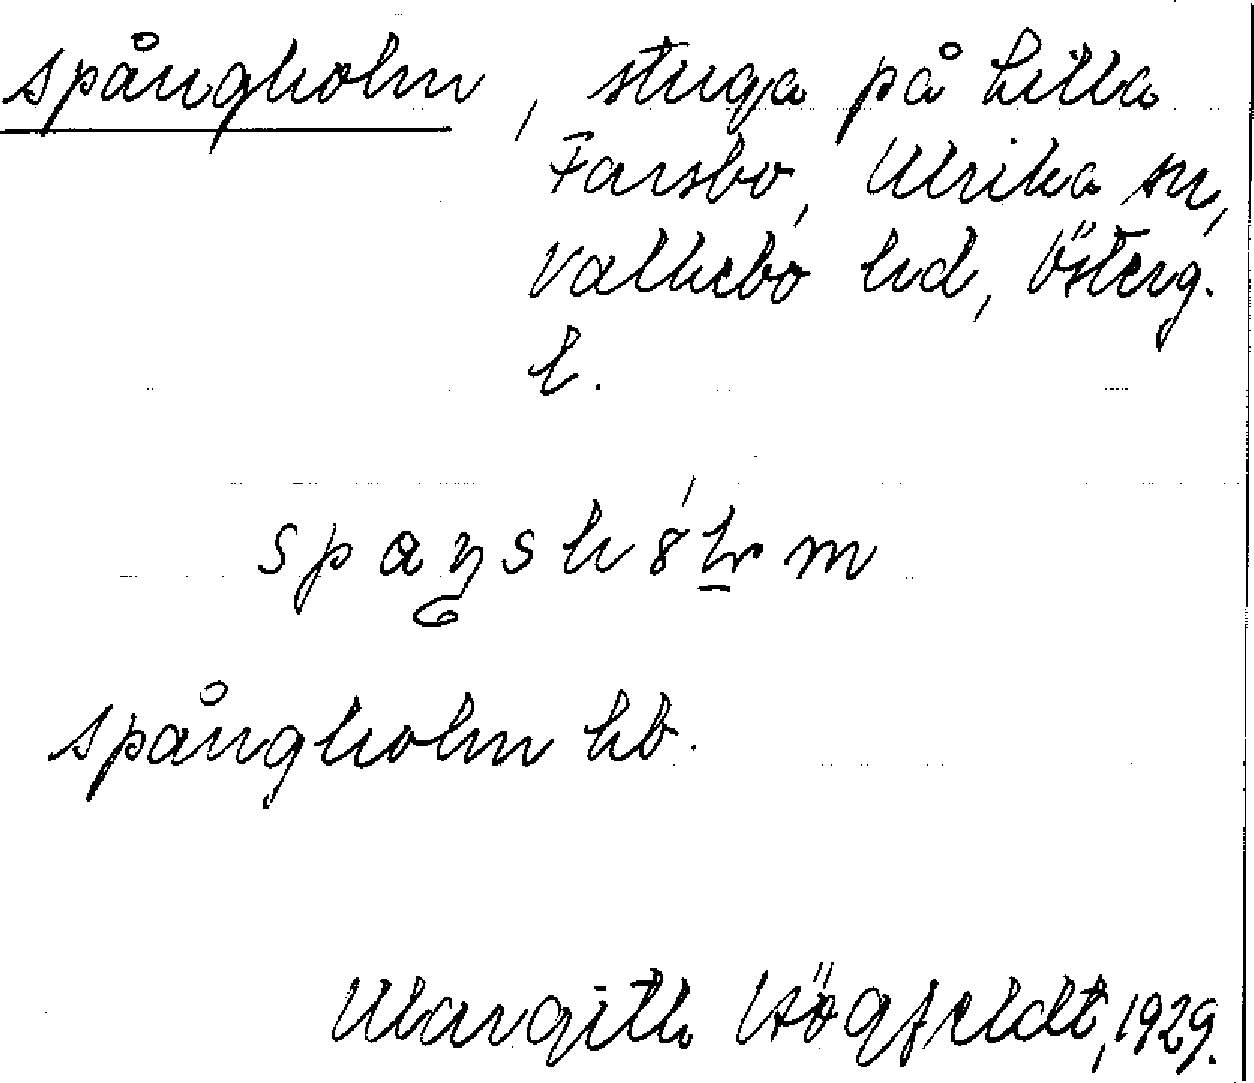 Spångholm, stuga på Lilla
Farsbo, Ulrika sn,
Valkebo hd, Österg.
l.
Spångholm hb.
Margith Högfeldt, 1929.